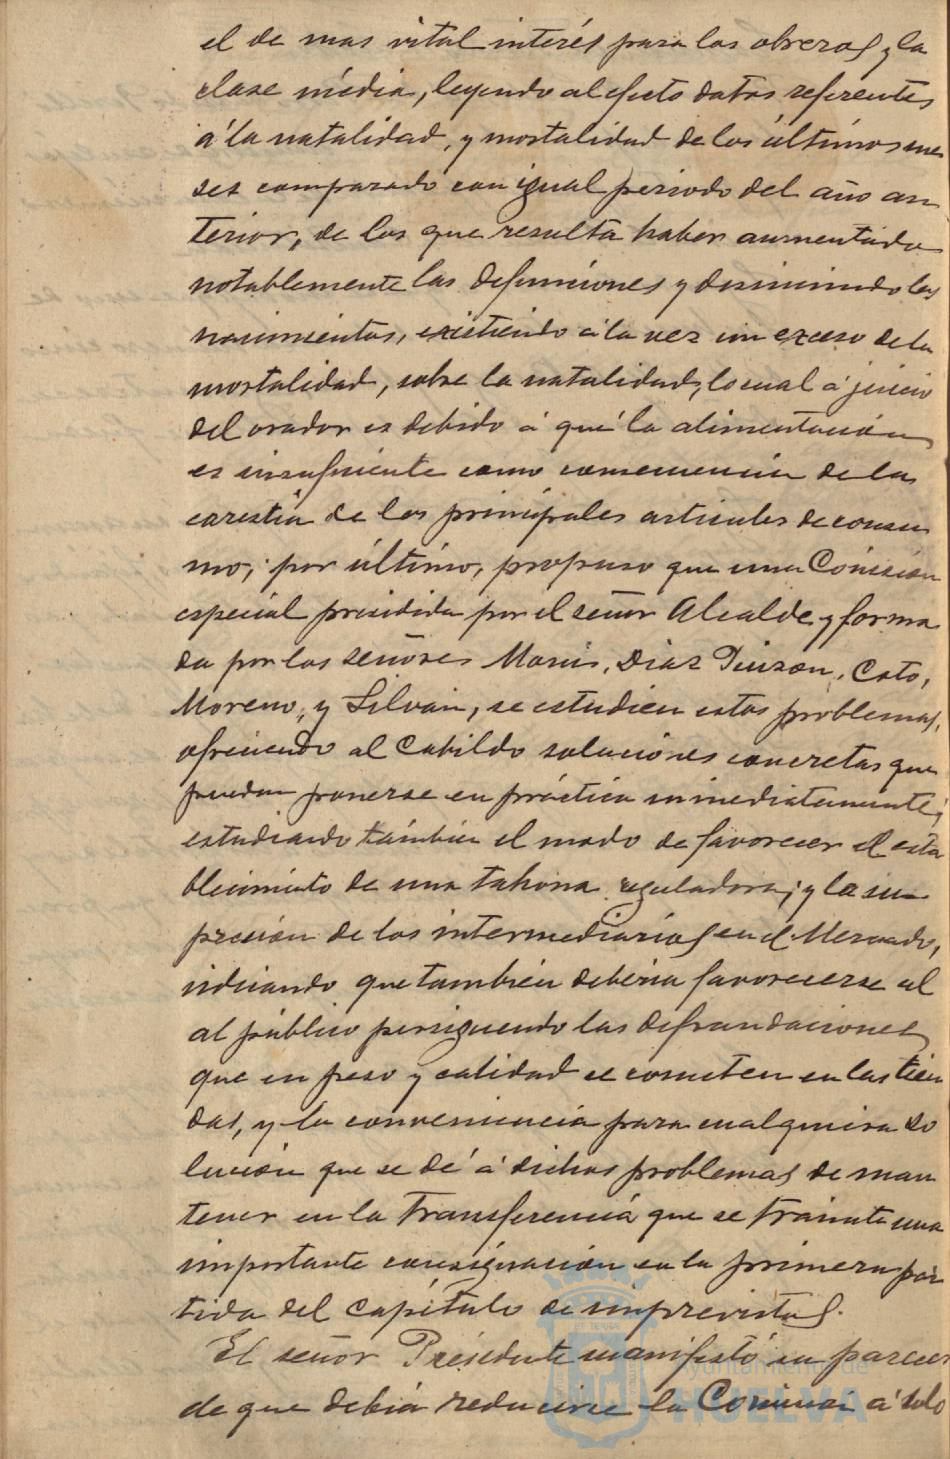 el de mas vital interés para los obreros y la
clase média, leyendo al efecto datos referentes
á la natalidad, y mortalidad de los últimos me
ses comparado con igual periodo del año an
terior, de los que resulta haber aumentado
notablemente las defunciones y disminuido los
nacimientos, existiendo á la vez un exceso de la
mortalidad, sobre la natalidad, lo cual á juicio
del orador es debido á qué la alimentación
es insuficiente como consecuencia de la
carestía de los principales articulos de consu
mo; por último, propuso que una Comisión
especial presidida por el señor Alcalde, y forma
da por los señores Marin, Diaz Pinzon, Coto,
Moreno, y Silvan, se estudien estos problemas,
ofreciendo al Cabildo soluciones concretas que
puedan ponerse en práctica inmediatamente;
estudiando también el modo de favorecer el esta
blecimiento de una tahona reguladora; y la su
presión de los intermediarios en el Mercado,
indicando que también debería favorecerse al
al público persiguendo las defraudaciones
que en peso y calidad se cometen en las tien
das, y la conveniencia para cualquiera so
lución que se dé á dichos problemas de man
tener en la transferencia que se tramita una
importante consignación en la primera par
tida del capítulo de imprevistos.
El señor Présidente manifestó su parecer
de que debía reducirse la Comision á solo
Ayuntamiento de
HUELVA